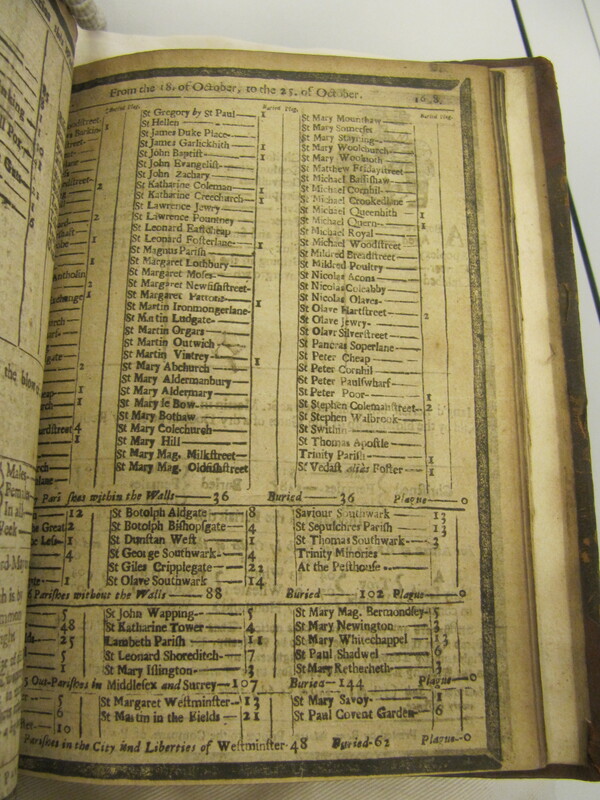 From the 18. of October, to the 25. of October. 16 8.
Buried Plag. Buried Plag. Buried Plag.
St Gregory by St Paul 1
St Hellen
St James Duke Place
St James Garlickhith 1
St John Baptist 1
St John Evangelist
St John Zachary
St Katharine Coleman 1
St Katharine Creechurch 1
St Lawrence Jewry
St Lawrence Pountney
St Leonard Eastcheap
St Leonard Fosterlane 1
St Magnus Parish
St Margaret Lothbury
St Margaret Moses
St Margaret Newfishstreet
St Margaret Pattons 1
St Martin Ironmongerlane
St Martin Ludgate
St Martin Orgars
St Martin Outwich
St Martin Vintrey 1
St Mary Abchurch
St Mary Aldermanbury
St Mary Aldermary
St Mary le Bow
St Mary Bothaw
St Mary Colechurch
St Mary Hill
St Mary Mag. Milkstreet
St Mary Mag. Oldfishstreet
St Mary Mounthaw
St Mary Somerset
St Mary Stayning
St Mary Woolchurch
St Mary Woolnoth
St Matthew Fridaystreet
St Michael Bassishaw
St Michael Cornhil
St Michael Crookedlane
St Michael Queenhith 1
St Michael Quern 1
St Michael Royal
St Michael Woodstreet
St Mildred Breadstreet
St Mildred Poultry
St Nicolas Acons
St Nicolas Coleabby
St Nicolas Olaves
St Olave Hartstreet 2
St Olave Jewry
St Olave Silverstreet
St Pancras Soperlane
St Peter Cheap
St Peter Cornhil
St Peter Paulswharf
St Peter Poor 1
St Stephen Colemanstreet 2
St Stephen Walbrook
St Swithin
St Thomas Apostle
Trinity Parish 1
St Vedast alias Foster 1
Parishes within the Walls 36 Buried 36 Plague 0
12 St Botolph Aldgate 8 Saviour Southwark 13
Great 2 St Botolph Bishopsgate 4 St Sepulchres Parish 13
Less 1 St Dunstan West 1 St Thomas Southwark 3
4 St George Southwark 4 Trinity Minories
St Giles Cripplegate 22 At the Pesthouse
1 St Olave Southwark 14
Parishes without the Walls 88 Buried 102 Plague 0
5 St John Wapping 5 St Mary Mag. Bermondsey 5
48 St Katharine Tower 4 St Mary Newington 3
25 Lambeth Parish 11 St Mary Whitechappel 13
5 St Leonard Shoreditch 7 St Paul Shadwel 6
1 St Mary Islington 3 St Mary Retherheth 3
Out-Parishes in Middlesex and Surrey 107 Buried 144 Plague 0
5 St Margaret Westminster 13 St Mary Savoy 1
6 St Martin in the Fields 21 St Paul Covent Garden 6
10
Parishes in the City and Liberties of Westminster 48 Buried 62 Plague 0